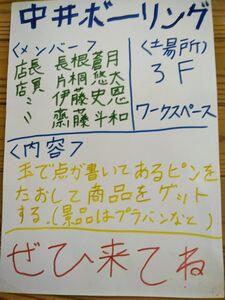 中井ボーリング
<メンバー>
店長 長根蒼月
店員 片桐悠大
〃 伊藤史恩
〃 齋藤斗和
<場所>
3F
ワークスペース
<内容>
玉で点が書いてあるピンを
たおして商品をゲット
する。(景品はプラバンなど)
ぜひ来てね